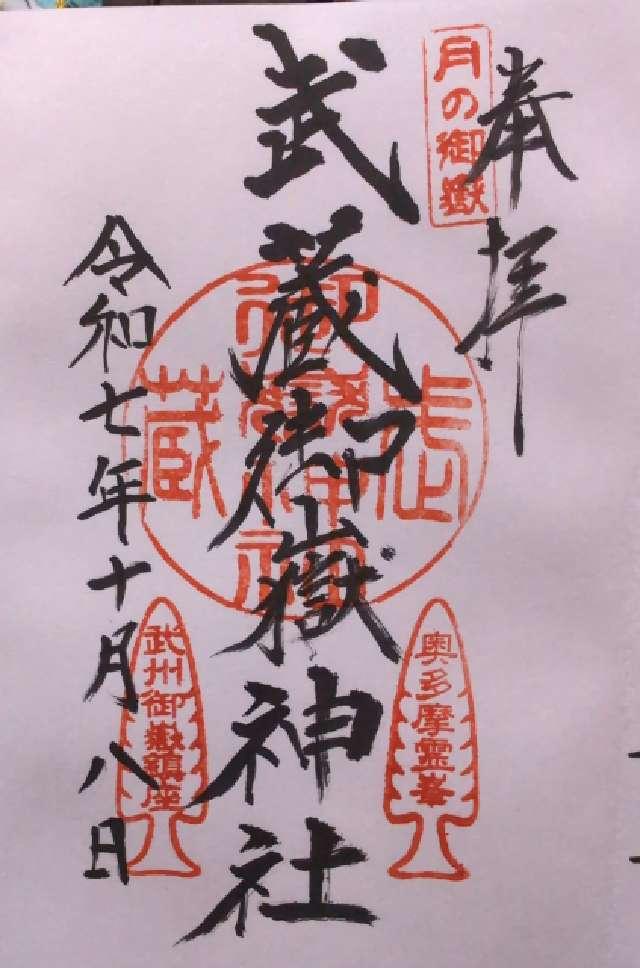 奉拝
月の御嶽
武蔵御嶽神社
武蔵御嶽神社
奥多摩霊峯
武州御嶽鎮座
令和七年十月八日